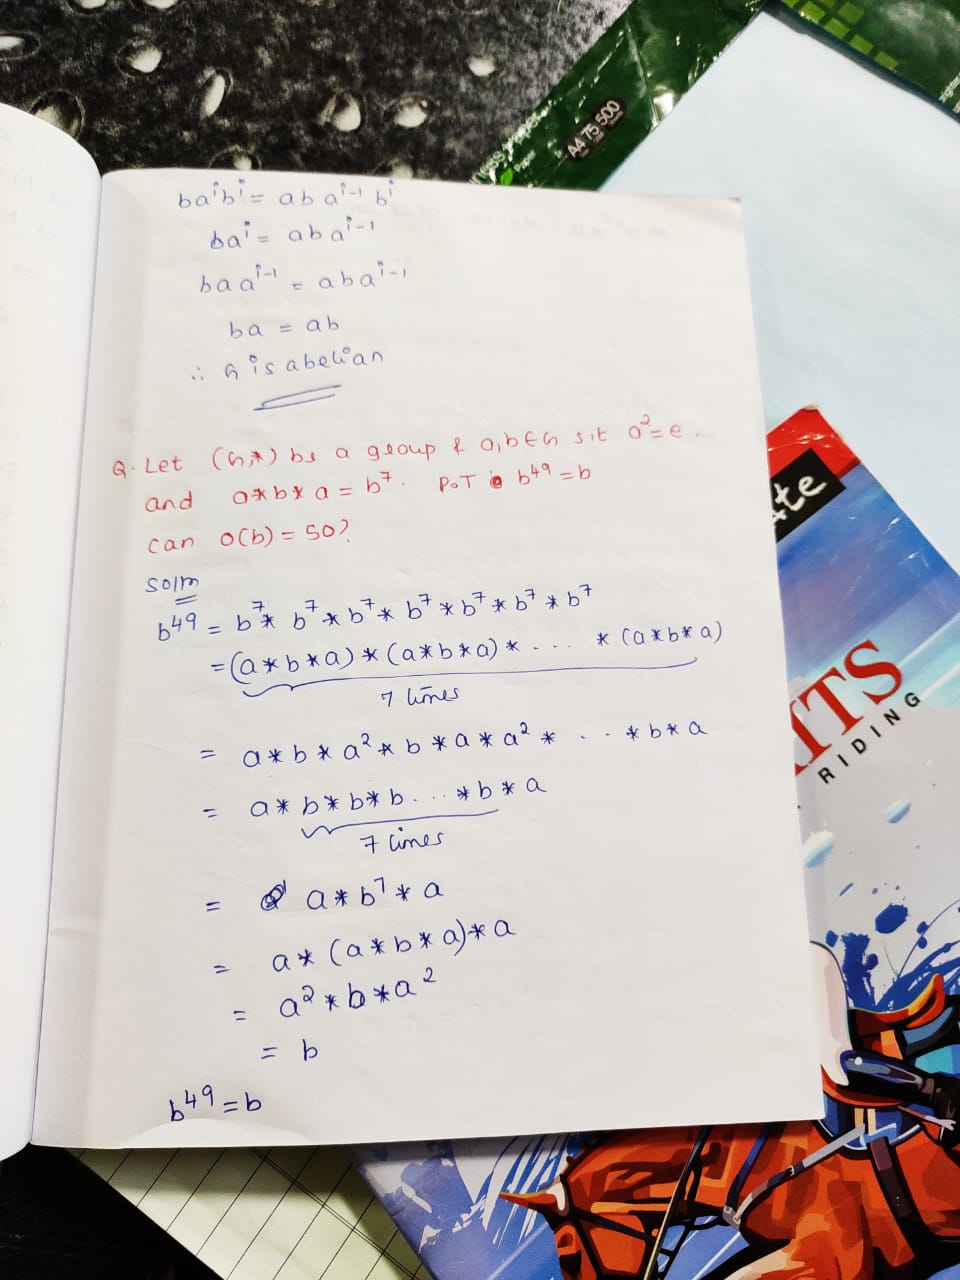 A4 75 500
Paper
baⁱbⁱ = ab aⁱ⁻¹ bⁱ
baⁱ = abaⁱ⁻¹
baaⁱ⁻¹ = abaⁱ⁻¹
ba = ab
∴ G is abelian
Q. Let (G,*) be a group & a,b∈G s.t a²=e.
and a*b*a = b⁷. P.T b⁴⁹=b
can o(b) = 50?
Soln
b⁴⁹ = b⁷* b⁷* b⁷* b⁷* b⁷* b⁷* b⁷
=(a*b*a)*(a*b*a)* . ... *(a*b*a)
7 times
= a*b*a²*b*a*a²* . .. *b*a
= a*b*b*b...*b*a
7 times
= a*b⁷*a
= a*(a*b*a)*a
= a²*b*a²
= b
b⁴⁹=b
te
ITS
RIDING